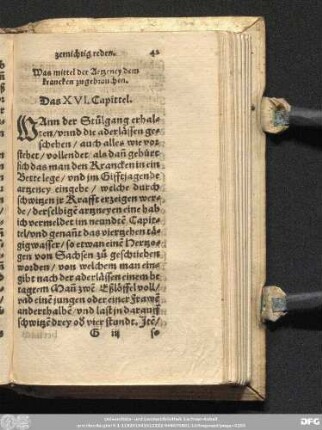 zemichtig reden. 42
Was mittel der Artzeney dem
krancken zugebrauchen.
Das XVI. Capittel.
WAnn der Stůlgang erhal⸗
ten/vnnd die aderlåssen ge⸗
schehen / auch alles wie vor
stehet / vollendet als dañ gebürt
sich das man den Krancken in ein
Bette lege / vnd jm Gifftjagende
artzeney eingebe / welche durch
schwitzen jr Krafft erzeigen wer⸗
de / derselbigẽ artzneyen eine hab
ich vermeldet im neundtẽ Capit⸗
tel/vnd genañt das viertzehen tå⸗
gigwasser / so etwan einẽ Hertzo⸗
gen von Sachsen zů geschrieben
worden / von welchem man ein⸗
gibt nach der aderlåssen einem be
tagtem Mañ zwẽ Eßlöffel voll/
vnd einẽ jungen oder einer Frawẽ
anderthalbẽ / vnd last jn darauff
schwitzẽ drey oď vier stundt. Jtẽ/
G iij so